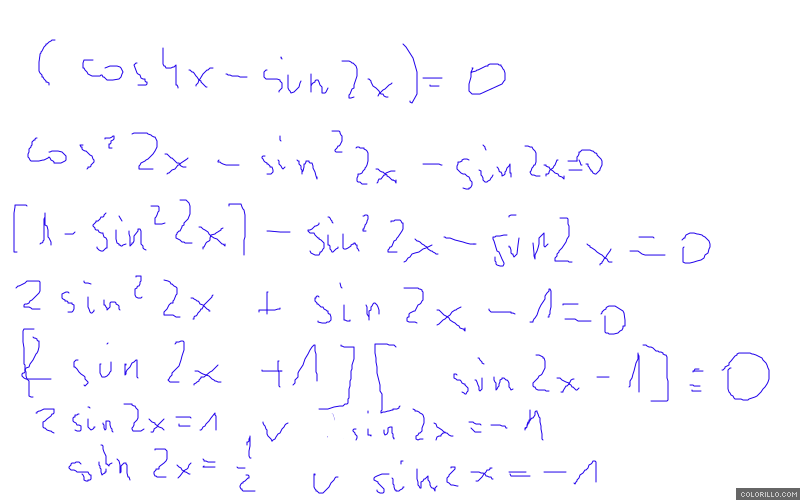 (cos4x - sin2x) = 0
cos² 2x - sin² 2x - sin2x=0
[1 - sin² 2x] - sin² 2x - sin2x = 0
2 sin² 2x + sin 2x - 1 = 0
[2 sin 2x + 1] [ sin 2x - 1] = 0
2 sin 2x = 1 v sin 2x = - 1
sin 2x = 1/2 v sin 2x = - 1
COLORILLO.COM